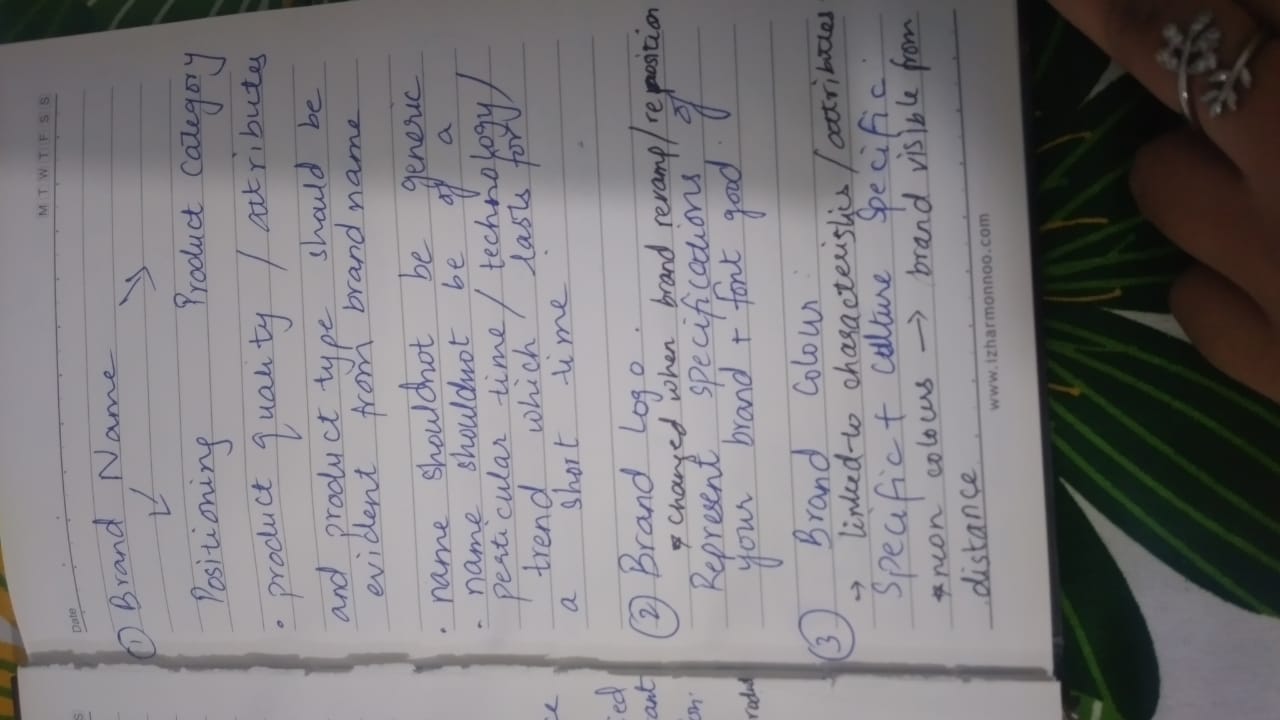 M T W T F S S
Date
① Brand Name
↙ ↘
Positioning Product Category
• product quality / attributes
and product type should be
evident from brand name
• name shouldnot be generic
• name shouldnot be of a
perticular time / technology /
trend which lasts for
a short time.
② Brand Logo.
* Changed when brand revamp/reposition
Represent specifications of
your brand + font good.
③ Brand Colour:
→ linked to characteristics / attributes
Specific + Culture Specific.
* neon colours → brand visible from
distance
www.izharmonnoo.com
S
ce
ed
ant
on.